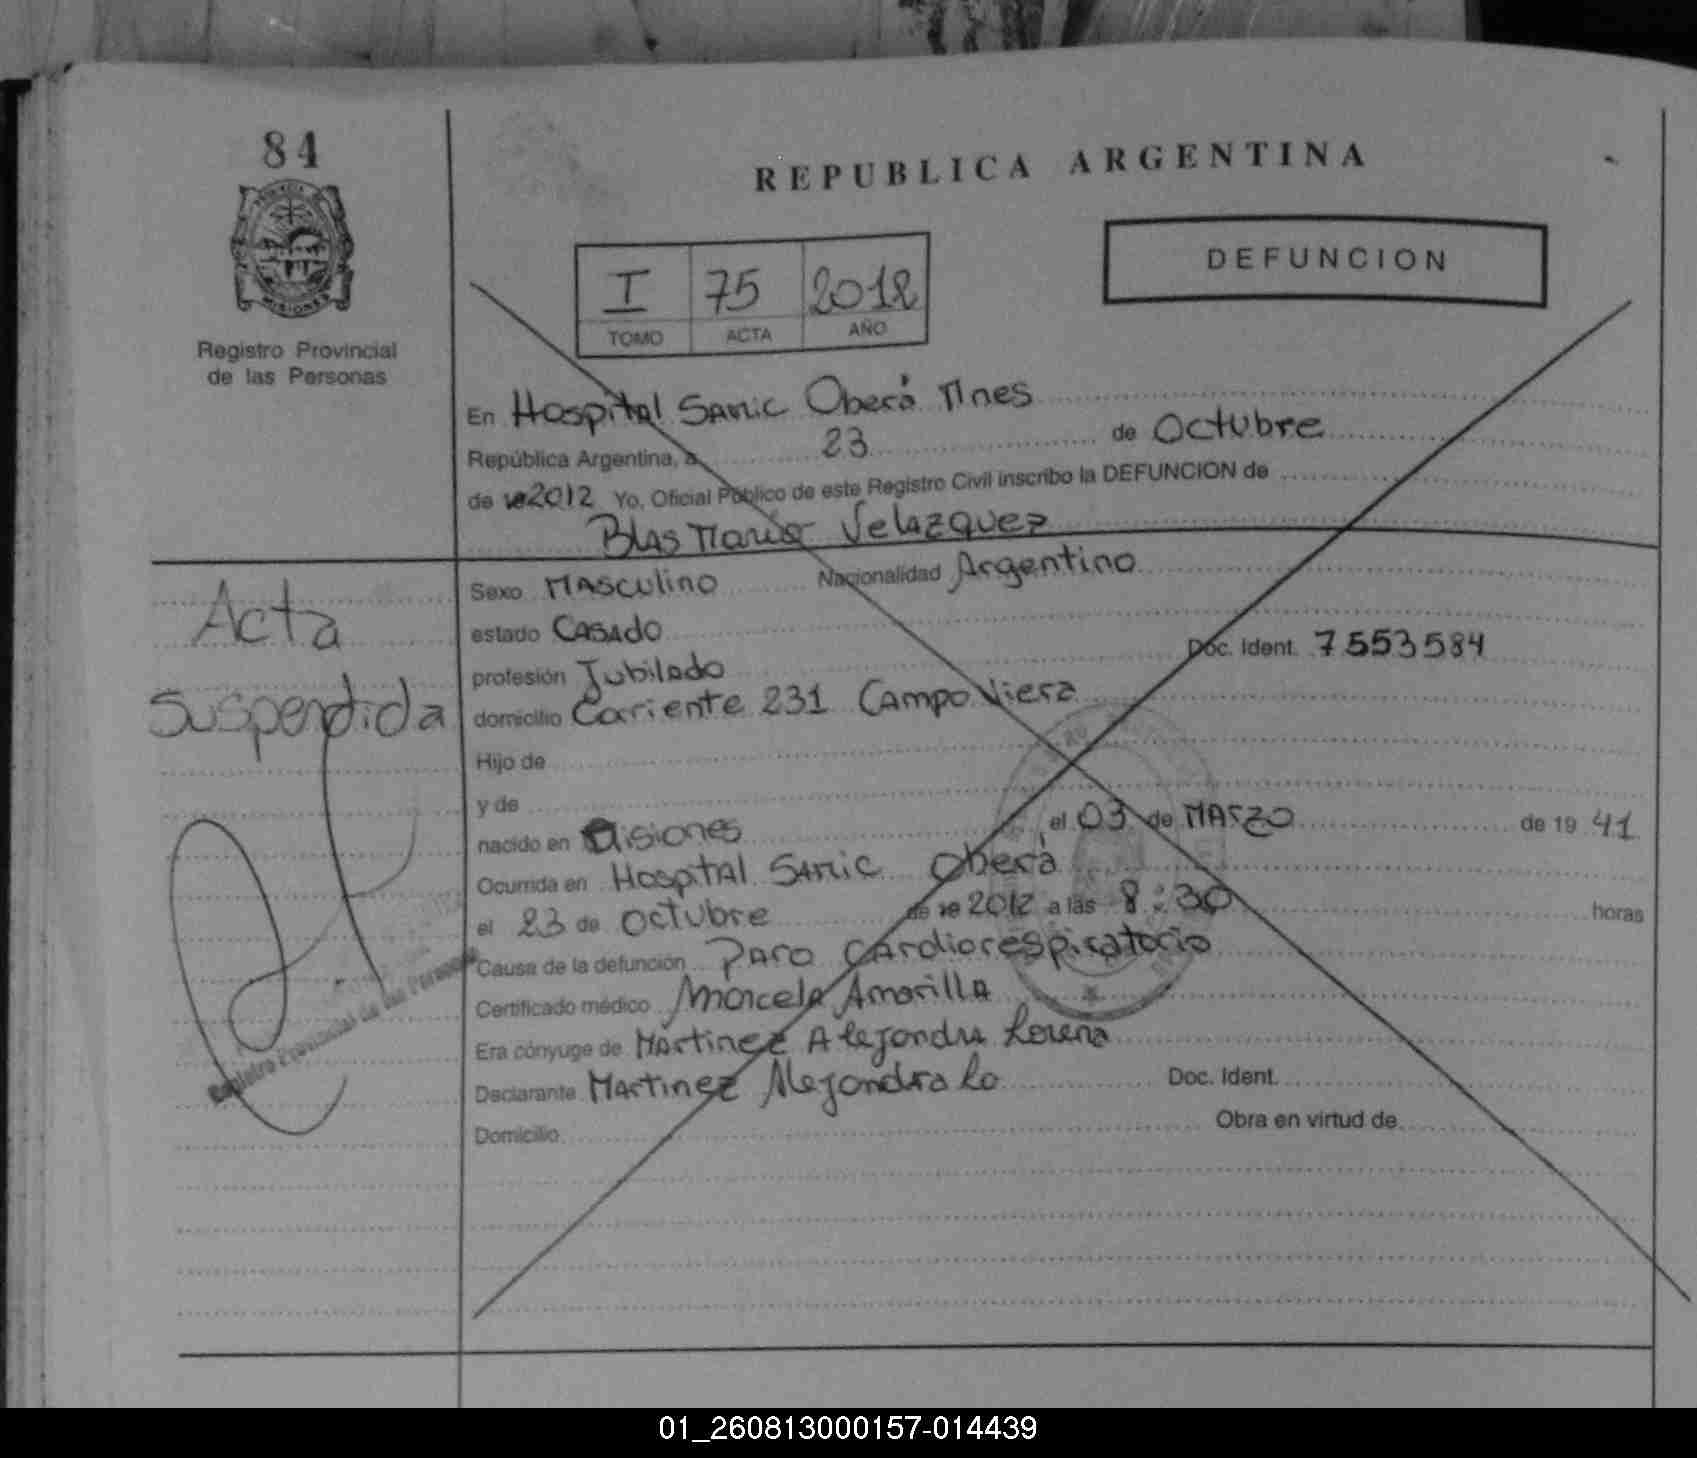 84
REPUBLICA ARGENTINA
MISIONES
Registro Provincial
de las Personas
I 75 2012
TOMO ACTA AÑO
DEFUNCION
En Hospital SAMIC Oberá Mnes
República Argentina, a 23 de Octubre
de 2012 Yo, Oficial Público de este Registro Civil inscribo la DEFUNCION de
Blas Mario Velazquez
Acta
Suspendida
Sexo Masculino Nacionalidad Argentino
estado Casado
profesión Jubilado Doc. Ident. 7553584
domicilio Corriente 231 Campo Viera
Hijo de
y de
nacido en Misiones el 03 de Marzo de 19 41
Ocurrida en Hospital SAMIC Oberá
el 23 de Octubre de 2012 a las 8:30 horas
Causa de la defunción Paro Cardiorespiratorio
Certificado médico Marcela Amarilla
Era cónyuge de Martinez Alejandra Lorena
Declarante Martinez Alejandra Lo Doc. Ident.
Domicilio Obra en virtud de
Registro Provincial de las Personas
01_260813000157-014439